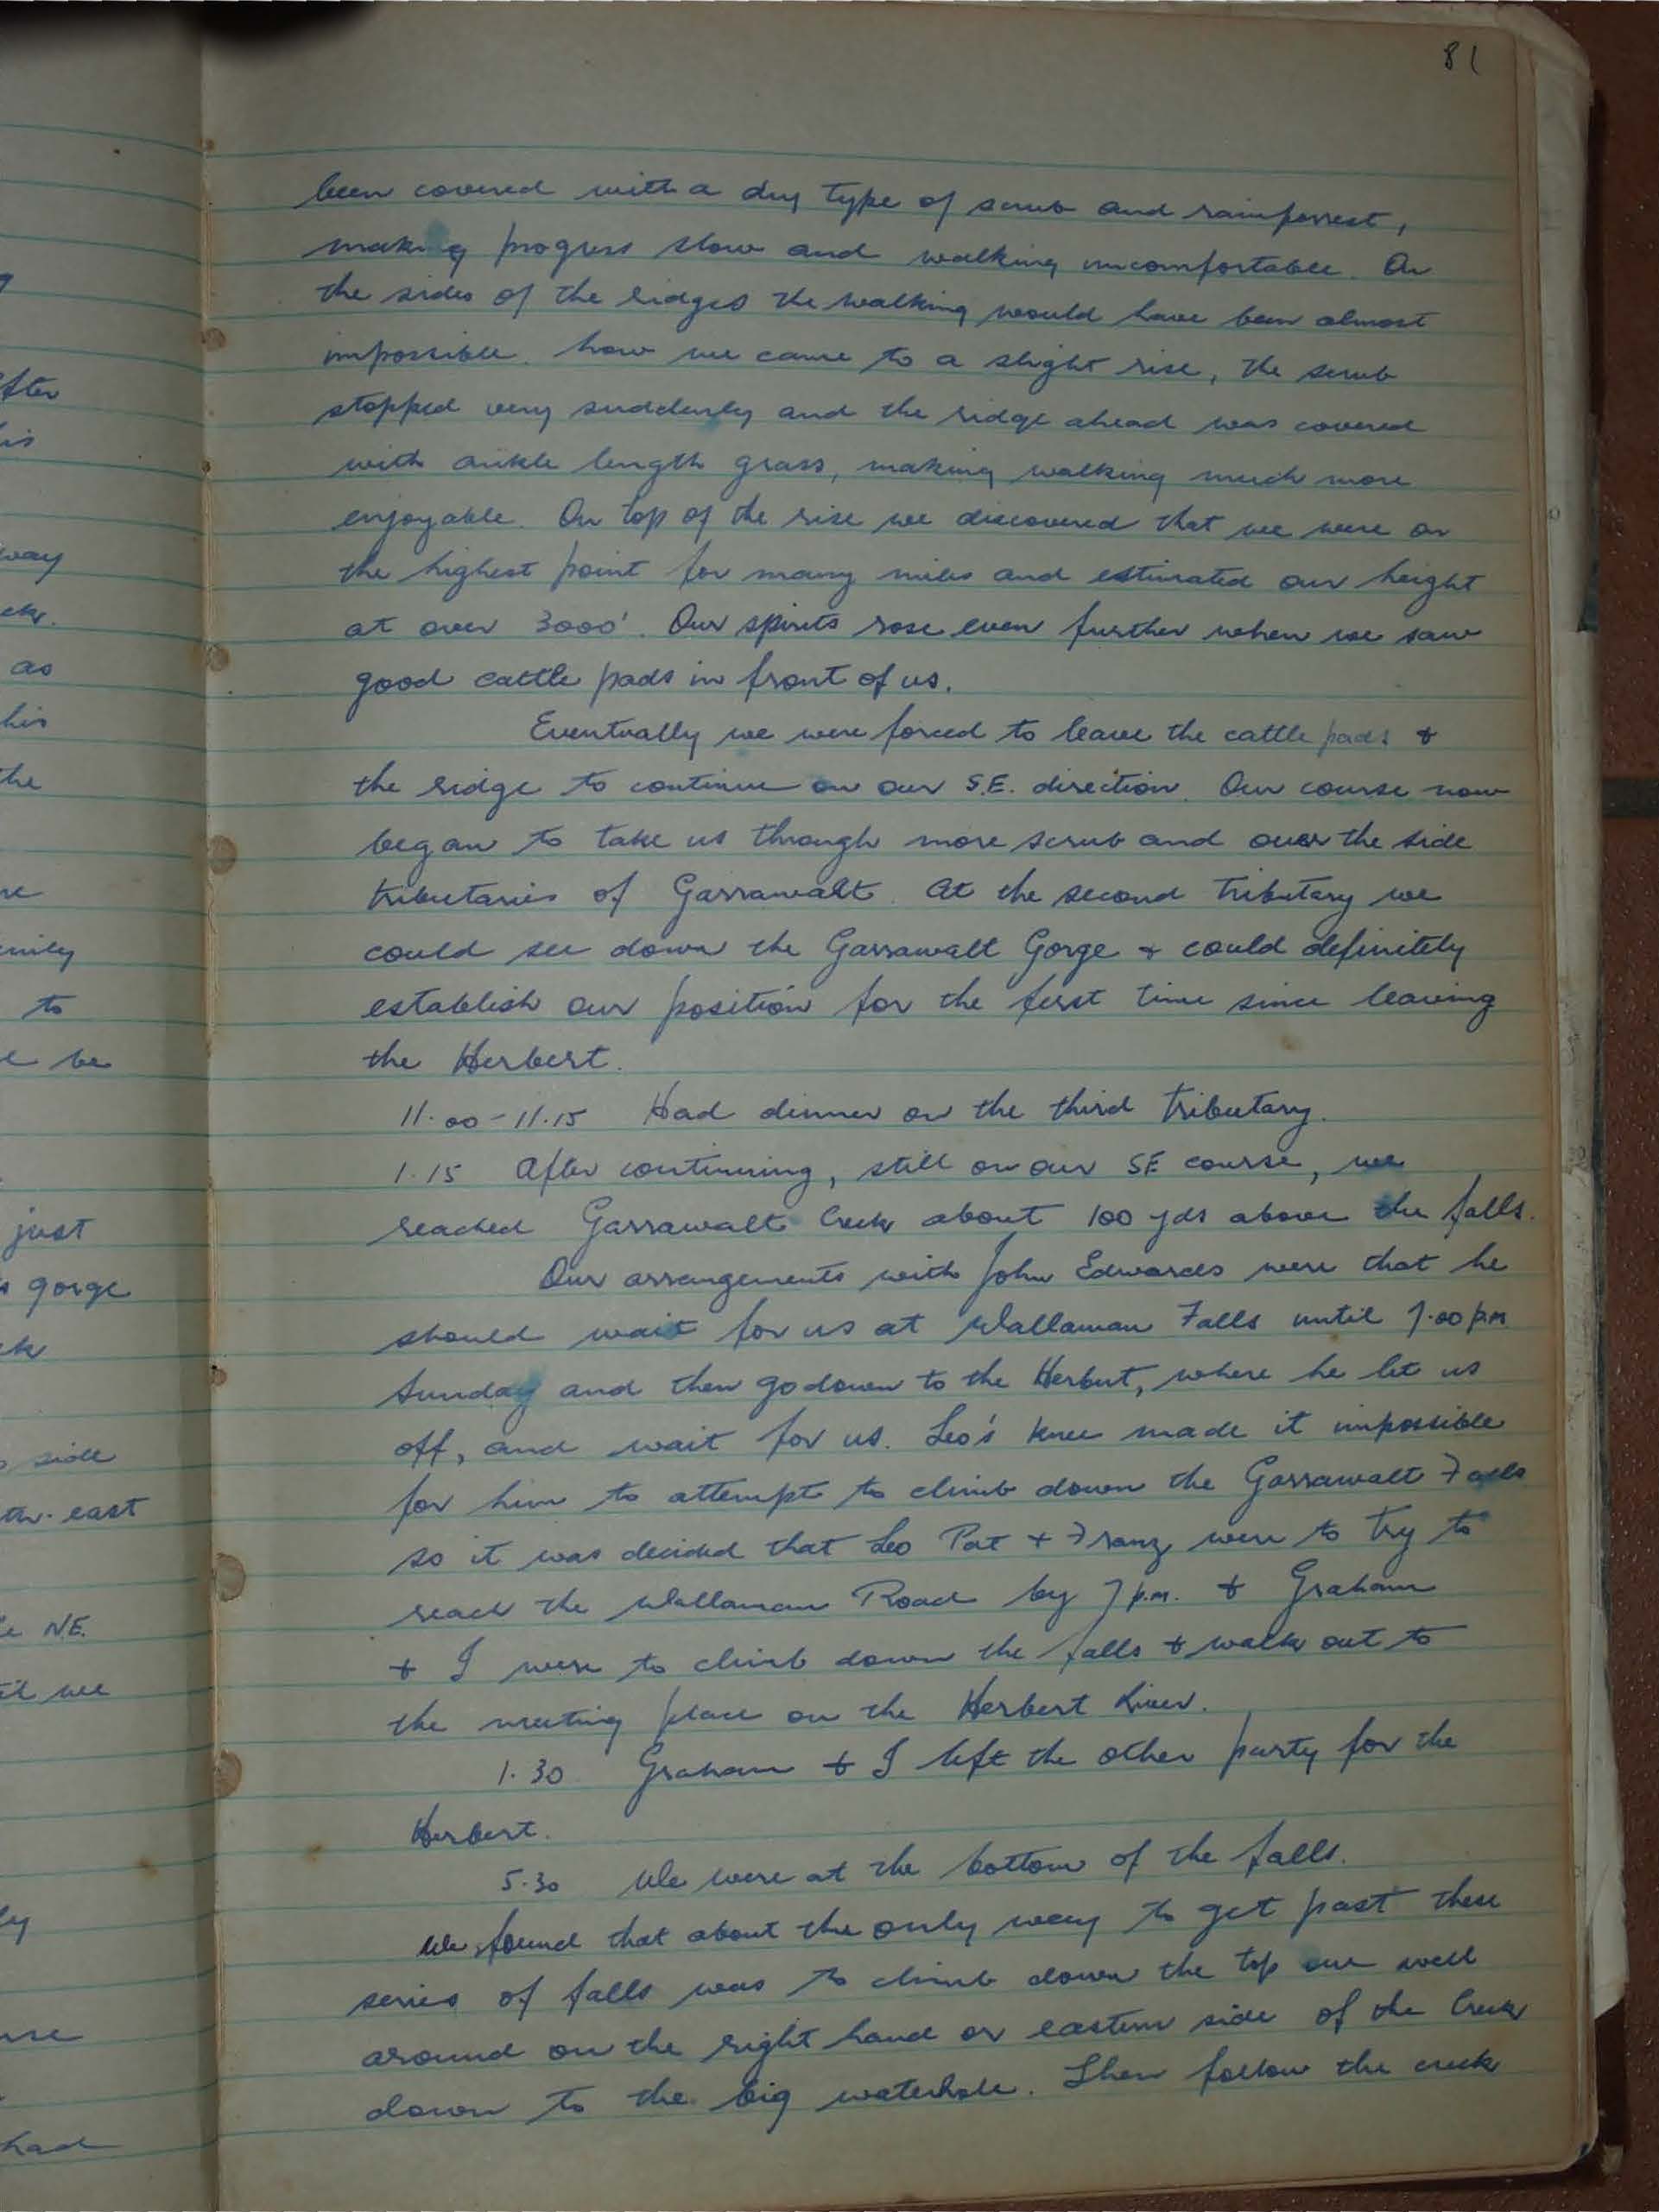 81
been covered with a dry type of scrub and rainforrest,
making progress slow and walking uncomfortable. On
the sides of the ridges the walking would have been almost
impossible. Now we came to a slight rise, the scrub
stopped very suddenly and the ridge ahead was covered
with ankle length grass, making walking much more
enjoyable. On top of the rise we discovered that we were on
the highest point for many miles and estimated our height
at over 3000'. Our spirits rose even further when we saw
good cattle pads in front of us.
Eventually we were forced to leave the cattle pads &
the ridge to continue on our S.E. direction. Our course now
began to take us through more scrub and over the side
tributaries of Garrawalt. At the second tributary we
could see down the Garrawalt Gorge & could definitely
establish our position for the first time since leaving
the Herbert.
11.00 - 11.15 Had dinner on the third tributary.
1.15 After continuing, still on our SE course, we
reached Garrawalt Creek about 100 yds above the falls.
Our arrangements with John Edwards were that he
should wait for us at Wallaman Falls until 7.00 p.m
Sunday and then go down to the Herbert, where he let us
off, and wait for us. Leo's knee made it impossible
for him to attempt to climb down the Garrawalt Falls
so it was decided that Leo Pat & Franz were to try to
reach the Wallaman Road by 7 p.m. & Graham
& I were to climb down the falls & walk out to
the meeting place on the Herbert River.
1.30 Graham & I left the other party for the
Herbert.
5.30 We were at the bottom of the falls.
We found that about the only way to get past these
series of falls was to climb down the top one well
around on the right hand or eastern side of the Creek
down to the big waterhole. Then follow the creek
after
his
way
as
his
the
to
be
just
gorge
side
east
N.E.
we
had